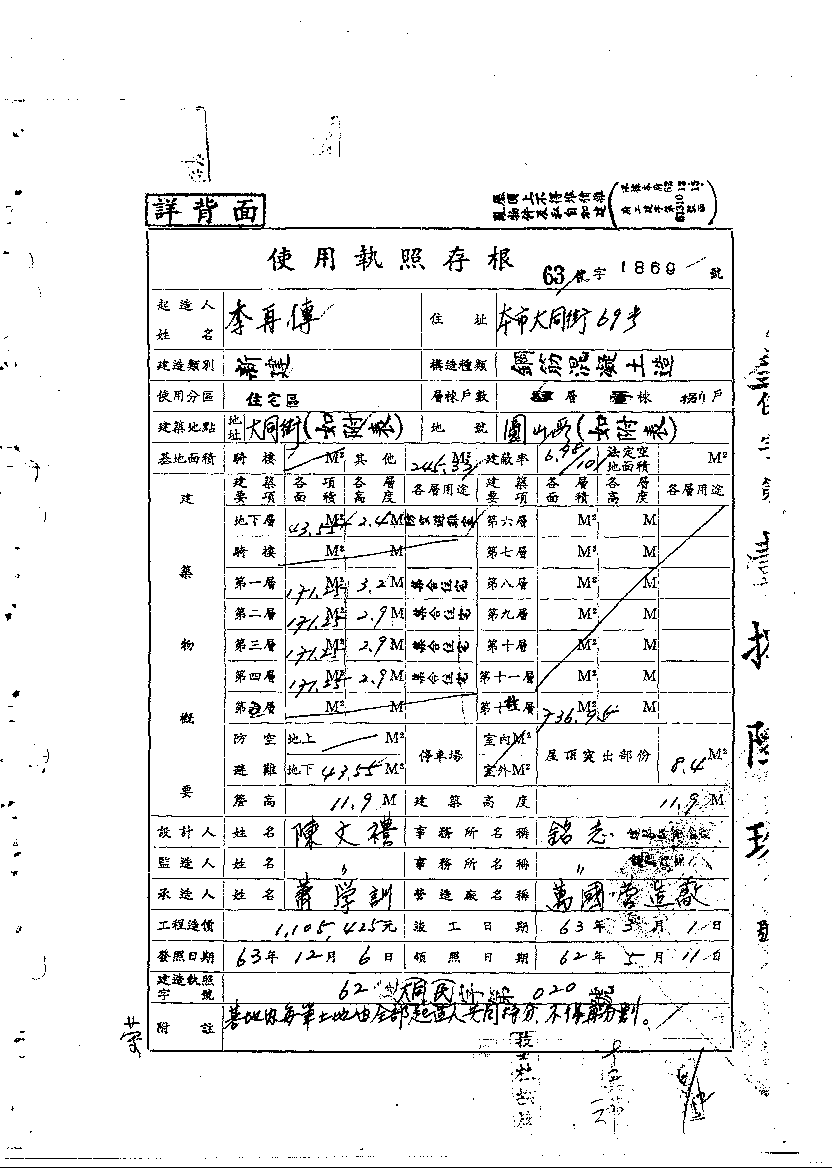 詳背面
使用執照存根
63 使字 1869 號
起造人姓名 李再傳 住址 本市大同街69号
建造類別 新建 構造種類 鋼筋混凝土造
使用分區 住宅區 層棟戶數 層 棟 戶
建築地點 地址 大同街(如附表) 地號 圓山段(如附表)
基地面積 騎樓 M² 其他 245.33 M² 建蔽率 6.98/10 法定空地面積 M²
建築物概要 建築要項 各項面積 各層高度 各層用途 建築要項 各層面積 各層高度 各層用途
地下層 43.55 M² 2.4 M 第六層 M² M
騎樓 M² M 第七層 M² M
第一層 171.25 M² 3.2 M 集合住宅 第八層 M² M
第二層 171.25 M² 2.9 M 集合住宅 第九層 M² M
第三層 171.25 M² 2.9 M 集合住宅 第十層 M² M
第四層 171.25 M² 2.9 M 集合住宅 第十一層 M² M
第 層 M² M 第十 層 736.95 M² M
防空避難 地上 M² 地下 43.55 M² 停車場 室內 M² 室外 M² 屋頂突出部份 8.4 M²
簷高 11.9 M 建築高度 11.9 M
設計人 姓名 陳文禮 事務所名稱 銘志
監造人 姓名 〃 事務所名稱 〃
承造人 姓名 蕭学訓 營造廠名稱 萬國營造廠
工程造價 1,105,425元 竣工日期 63年5月1日
發照日期 63年12月6日 領照日期 62年5月11日
建造執照字號 62 大同民 020
附註 基地內每筆土地由全部起造人共同持分,不得分割。